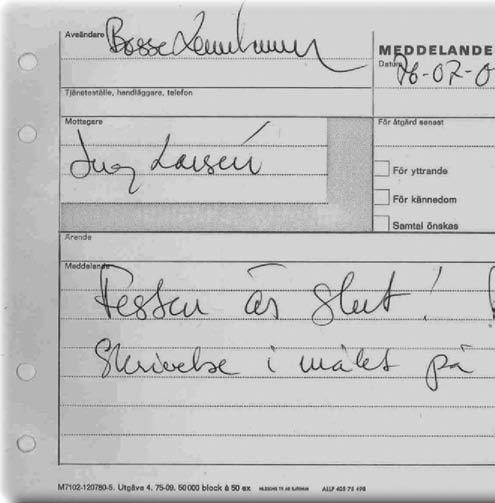 Avsändare Bosse
MEDDELANDE
Datum 76-07-0
Tjänsteställe, handläggare, telefon
Mottagare
För åtgärd senast
Larsen
För yttrande
För kännedom
Samtal önskas
Ärende
Meddelande
Festen är slut!
Skrivelse i målet på
M7102-120780-5. Utgåva 4. 75-09. 50 000 block à 50 ex